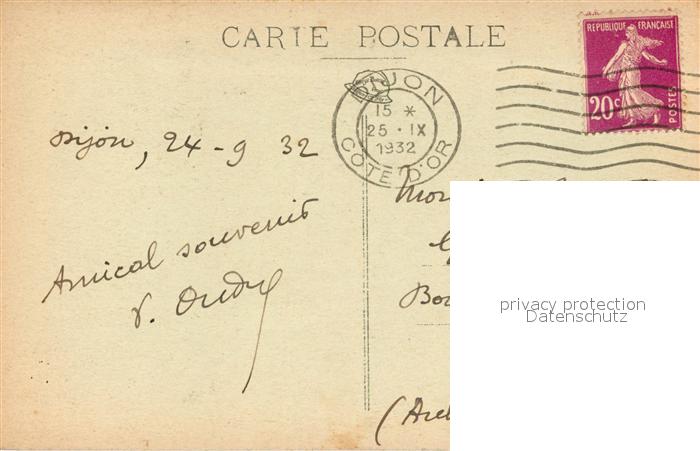 CARTE POSTALE
REPUBLIQUE FRANÇAISE
20c
POSTES
DIJON
15 *
25 · IX
1932
COTE D'OR
Dijon, 24 - 9 32
Amical souvenir
privacy protection
Datenschutz